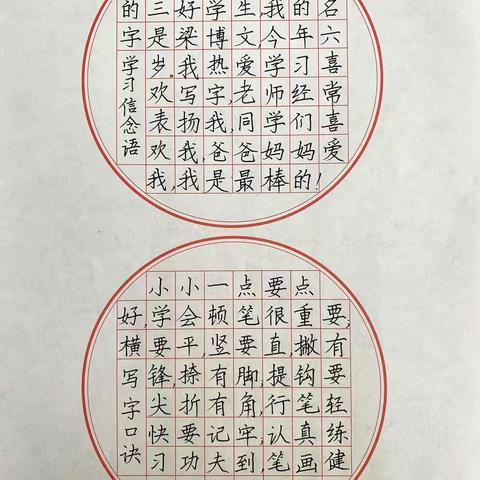 的三好学生,我的名
字是梁博文,今年六
岁.我热爱学习喜
欢写字,老师经常
表扬我,同学们喜
欢我,爸爸妈妈爱
我,我是最棒的!
学习信念语
小小一点要点
好,学会顿笔很重要;
横要平,竖要直,撇有
锋,捺有脚,提钩要
尖折有角,行笔轻
快要记牢;认真练
习功夫到,笔画健
写字口诀